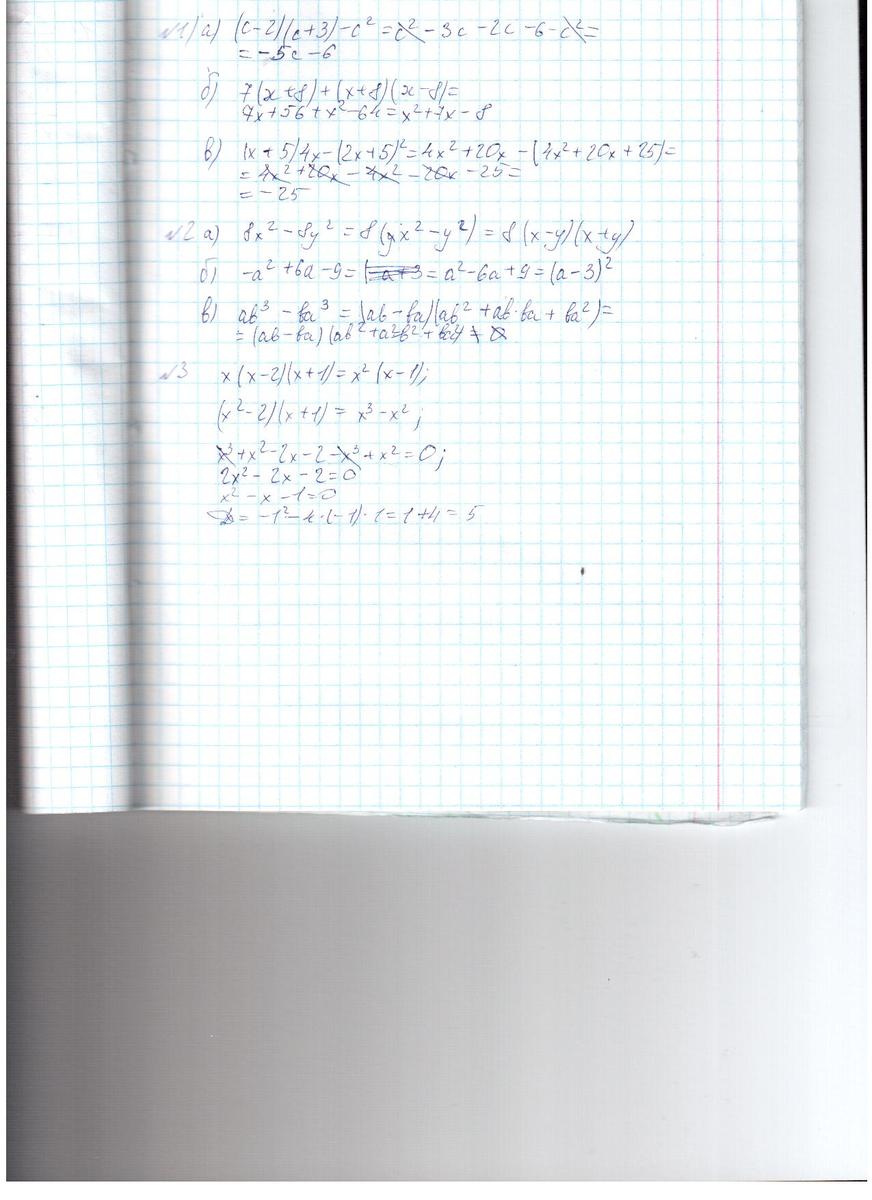 №1 а) (c-2)(c+3)-c² = c² - 3c - 2c - 6 - c² =
= -5c - 6
б) 7(x+8)+(x+8)(x-8)=
7x+56+x²-64=x²+7x-8
в) (x+5)4x-(2x+5)²=4x²+20x-(4x²+20x+25)=
= 4x²+20x-4x²-20x-25=
= -25
№2 а) 8x²-8y² = 8(x²-y²) = 8(x-y)(x+y)
б) -a²+6a-9=(-a+3 = a²-6a+9=(a-3)²
в) ab³-ba³ = (ab-ba)(ab²+ab·ba+ba²)=
= (ab-ba)(ab²+a²b²+ba²)
№3 x(x-2)(x+1)=x²(x-1);
(x²-2)(x+1) = x³-x²;
x³+x²-2x-2-x³+x²=0;
2x²-2x-2=0
x²-x-1=0
D=-1²-4·(-1)·1=1+4=5